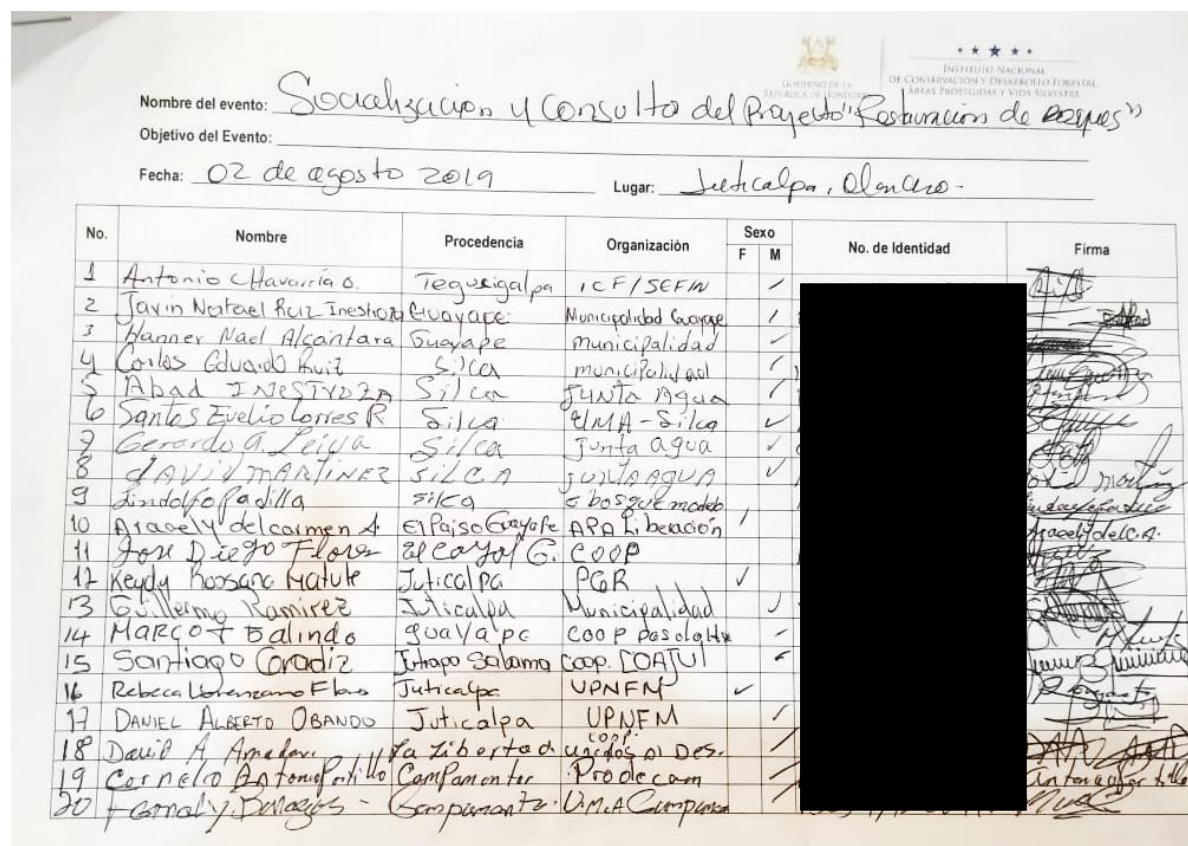 GOBIERNO DE LA
REPÚBLICA DE HONDURAS
INSTITUTO NACIONAL
DE CONSERVACIÓN Y DESARROLLO FORESTAL,
ÁREAS PROTEGIDAS Y VIDA SILVESTRE
Nombre del evento: Socialización y Consulta del Proyecto "Restauración de Bosques"
Objetivo del Evento:
Fecha: 02 de agosto 2019 Lugar: Juticalpa, Olancho.
No. Nombre Procedencia Organización Sexo F M No. de Identidad Firma
1 Antonio Chavarría O. Tegucigalpa ICF/SEFIN
2 Javin Natael Ruiz Inestroza Guayape Municipalidad Guayape
3 Hanner Nael Alcántara Guayape municipalidad
4 Carlos Eduardo Ruiz Silca municipalidad
5 Abad INESTROZA Silca JUNTA Agua
6 Santos Evelio Torres R Silca UMA-Silca
7 Gerardo A. Leiva Silca Junta agua
8 DAVID MARTINEZ SILCA JUNTA AGUA
9 Lindolfo Padilla silca bosque modelo
10 Aracely del carmen A. El Paiso Guayape APA Liberación Aracely del C.A.
11 Jose Diego Flores El Coyol G. COOP
12 Keydy Rossana Matute Juticalpa PGR
13 Guillermo Ramirez Juticalpa Municipalidad
14 MARCO T Galindo guayape COOP
15 Santiago Coradiz Salama Coop. COATUL
16 Rebeca Flores Juticalpa UPNFM
17 DANIEL ALBERTO OBANDO Juticalpa UPNFM
18 David A Amador La Libertad coop. unidos al Des.
19 Cornelio Antonio Portillo Campamento Prodecam
20 U.M.A